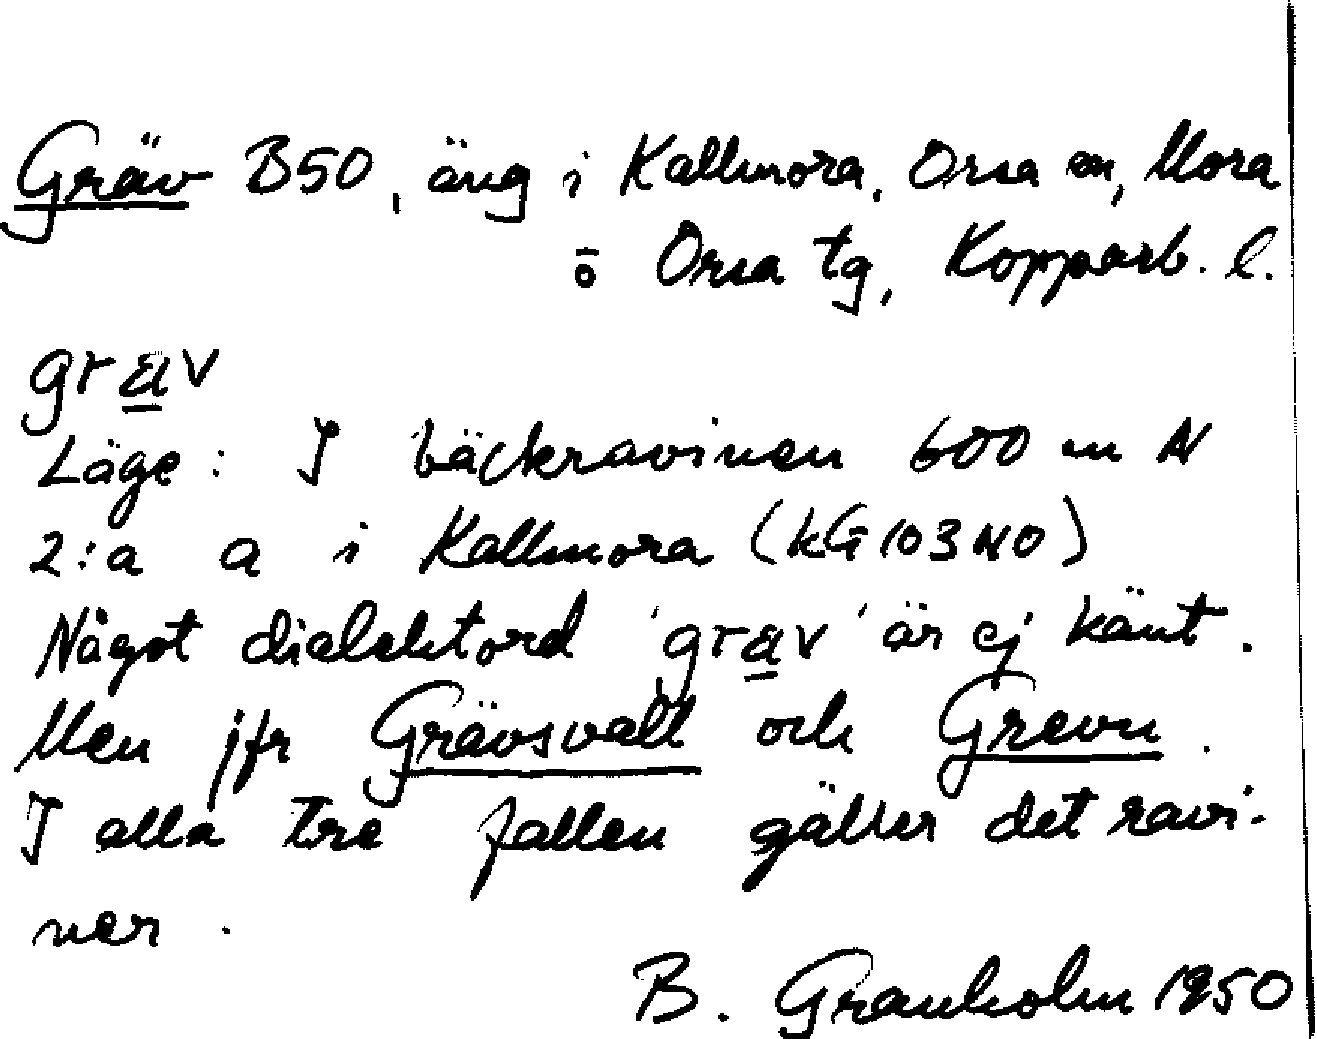 Gräv B50, äng i Kallmora, Orsa sn, Mora
o Orsa tg, Kopparb. l.
græv
Läge: I bäckravinen 600 m N
2:a a i Kallmora (kG 103 NO)
Något dialektord 'græv' är ej känt.
Men jfr Grävsvall och Grevu.
I alla tre fallen gäller det ravi-
ner.
B. Granholm 1950